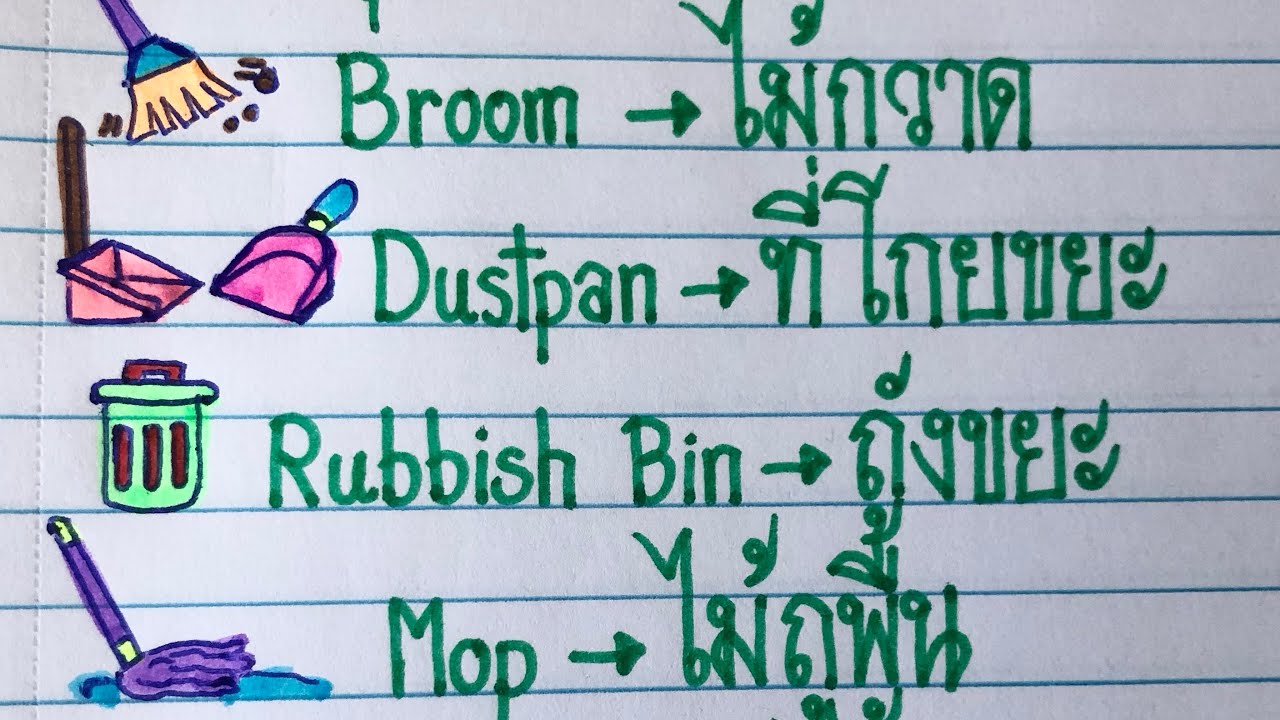 Broom → ไม้กวาด
Dustpan → ที่โกยขยะ
Rubbish Bin → ถังขยะ
Mop → ไม้ถูพื้น